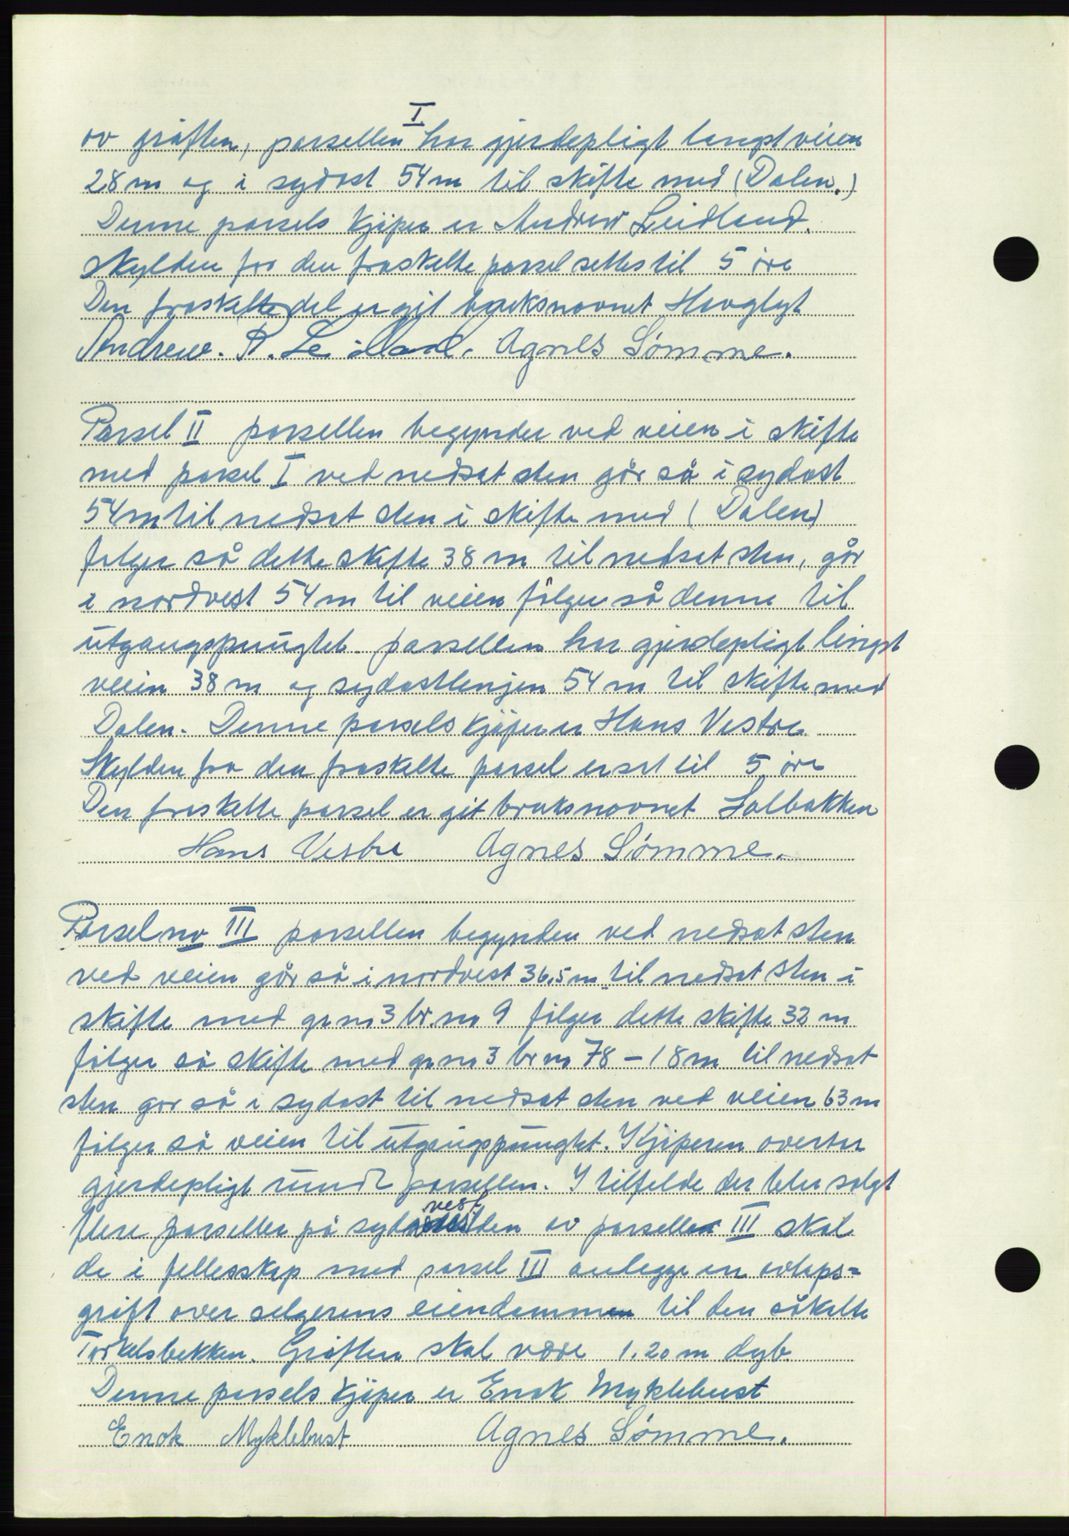 I
av grøften, parsellen har gjerdepligt langst veien
28 m og i sydost 54 m til skifte med (Dalen.)
Denne parsels kjøper er Andrew Leidland.
Skylden for den fraskelte parsel settes til 5 øre
Den fraskelte del er git bruksnavnet Haugtyt
Andrew. R. Leidland. Agnes Sømme.
Parsel II parsellen begynder ved veien i skifte
med parsel I ved nedsat sten går så i sydost
54 m til nedsat sten i skifte med (Dalen)
følger så dette skifte 38 m til nedsat sten, går
i nordvest 54 m til veien følger så denne til
utgangspungtet. parsellen har gjerdepligt lengst
veien 38 m og sydostlenjen 54 m til skifte med
Dalen. Denne parsels kjøper er Hans Vestre
Skylden fra den fraskelte parsel er set til 5 øre
Den fraskelte parsel er git bruksnavnet Solbakken
Hans Vestre Agnes Sømme.
Parsel no III parsellen begynder ved nedsat sten
ved veien går så i nordvest 36,5 m til nedsat sten i
skifte med gr no 3 br. no 9 følger dette skifte 32 m
følger så skifte med gr no 3 br no 78 – 18 m til nedsat
sten gor så i sydost til nedsat sten ved veien 63 m
følger så veien til utgangspungtet. Kjøperen overtar
gjerdepligt rundt parsellen. I tilfelde der blir solgt
vest
flere parseller på syd siden av parsellen III skal
de i fellesskap med parsel III anlegge en avløps=
grøft over selgerens eiendommen til den såkalte
Torkelsbekken. Grøften skal være 1.20 m dyb
Denne parsels kjøper er Enok Myklebust
Enok Myklebust Agnes Sømme.